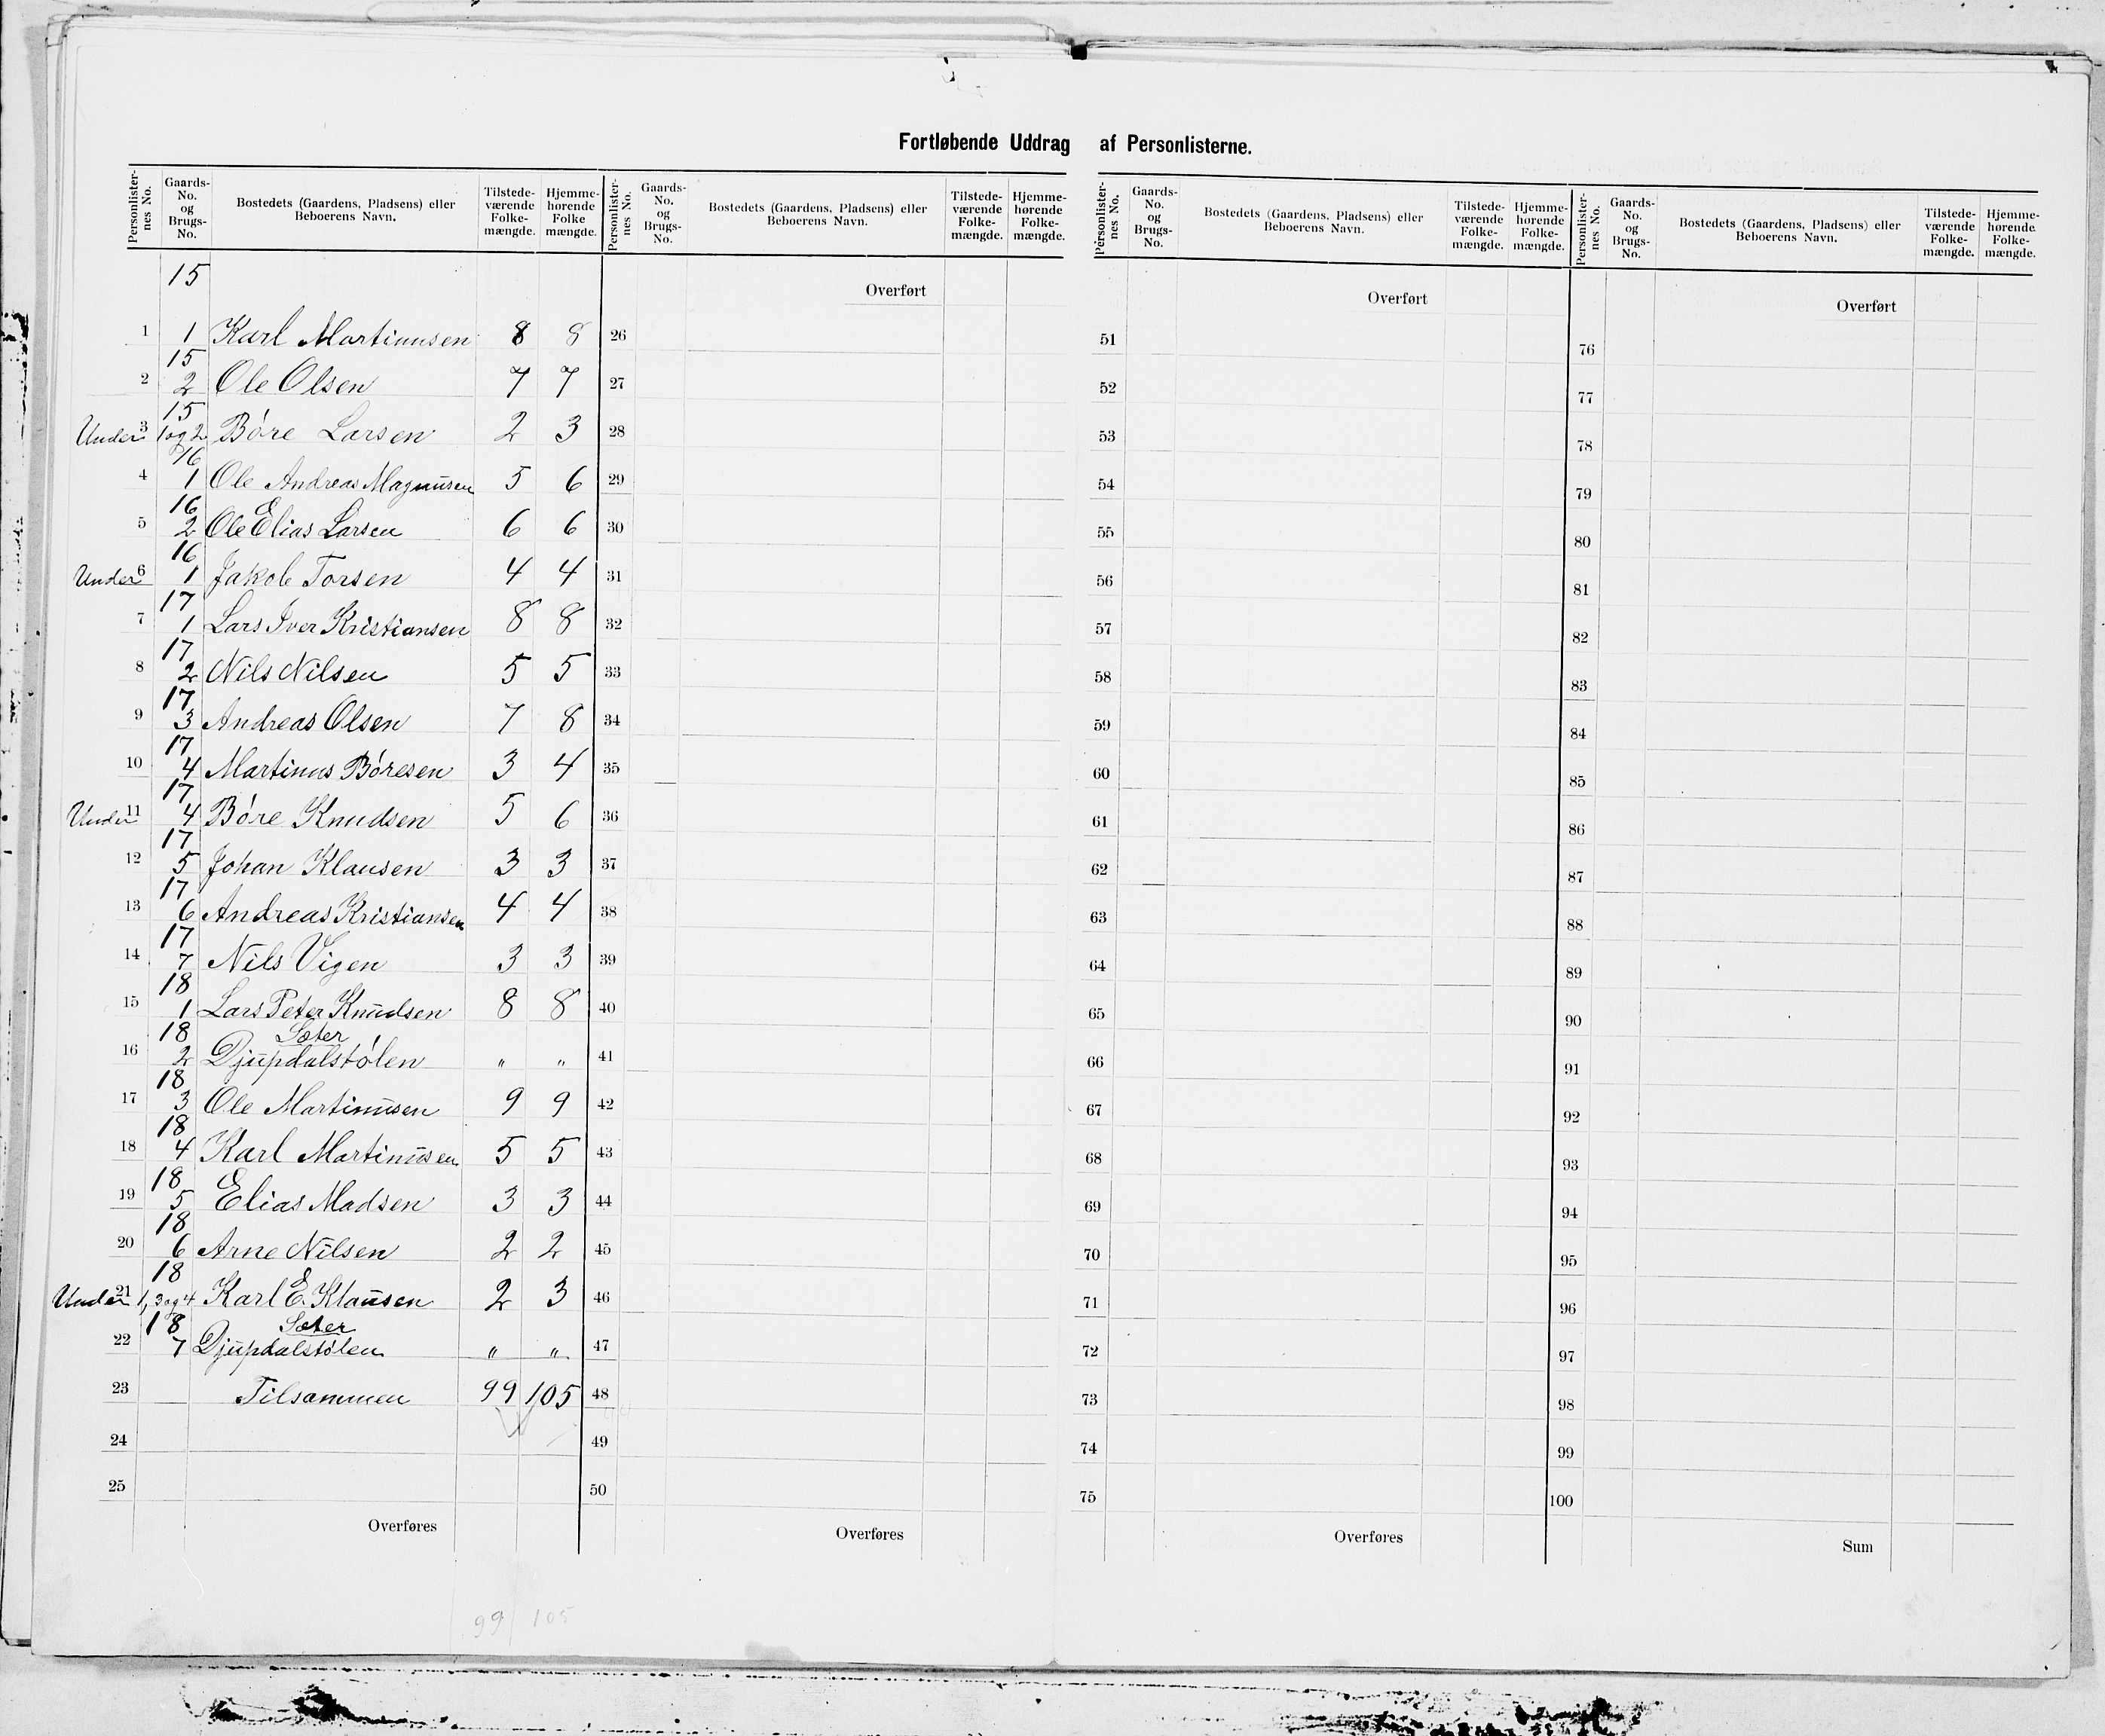 Fortløbende Uddrag af Personlisterne.
Personlister- nes No. Gaards- No. og Brugs- No. Bostedets (Gaardens, Pladsens) eller Beboerens Navn. Tilstede- værende Folke- mængde. Hjemme- hørende Folke mængde. Personlister- nes No. Gaards- No. og Brugs- No. Bostedets (Gaardens, Pladsens) eller Beboerens Navn. Tilstede- værende Folke- mængde. Hjemme- hørende Folke- mængde. Personlister- nes No. Gaards- No. og Brugs- No. Bostedets (Gaardens, Pladsens) eller Beboerens Navn. Tilstede- værende Folke- mængde. Hjemme- hørende Folke- mængde. Personlister- nes No. Gaards- No. og Brugs- No. Bostedets (Gaardens, Pladsens) eller Beboerens Navn. Tilstede- værende Folke- mængde. Hjemme- hørende Folke- mængde.
15 Overført Overført Overført
1 1 Karl Martinusen 8 8 26 51 76
15
2 2 Ole Olsen 7 7 27 52 77
15
Under 3 1 og 2 Bóre Larsen 2 3 28 53 78
16
4 1 Ole Andreas Magnusen 5 6 29 54 79
16
5 2 Ole Elias Larsen 6 6 30 55 80
16
Under 6 1 Jakob Torsen 4 4 31 56 81
17
7 1 Lars Iver Kristiansen 8 8 32 57 82
17
8 2 Nils Nilsen 5 5 33 58 83
17
9 3 Andreas Olsen 7 8 34 59 84
17
10 4 Martinus Bóresen 3 4 35 60 85
17
Under 11 4 Bóre Knudsen 5 6 36 61 86
17
12 5 Johan Klausen 3 3 37 62 87
17
13 6 Andreas Kristiansen 4 4 38 63 88
17
14 7 Nils Vigen 3 3 39 64 89
18
15 1 Lars Peter Knudsen 8 8 40 65 90
18 Sæter
16 2 Djupdalstólen " " 41 66 91
18
17 3 Ole Martinusen 9 9 42 67 92
18
18 4 Karl Martinusen 5 5 43 68 93
18
19 5 Elias Madsen 3 3 44 69 94
18
20 6 Arne Nilsen 2 2 45 70 95
18
Under 21 1, 3 og 4 Karl E. Klausen 2 3 46 71 96
18 Sæter
22 7 Djupdalstólen " " 47 72 97
23 Tilsammen 99 105 48 73 98
24 49 74 99
25 50 75 100
Overføres Overføres Overføres Sum
99 105